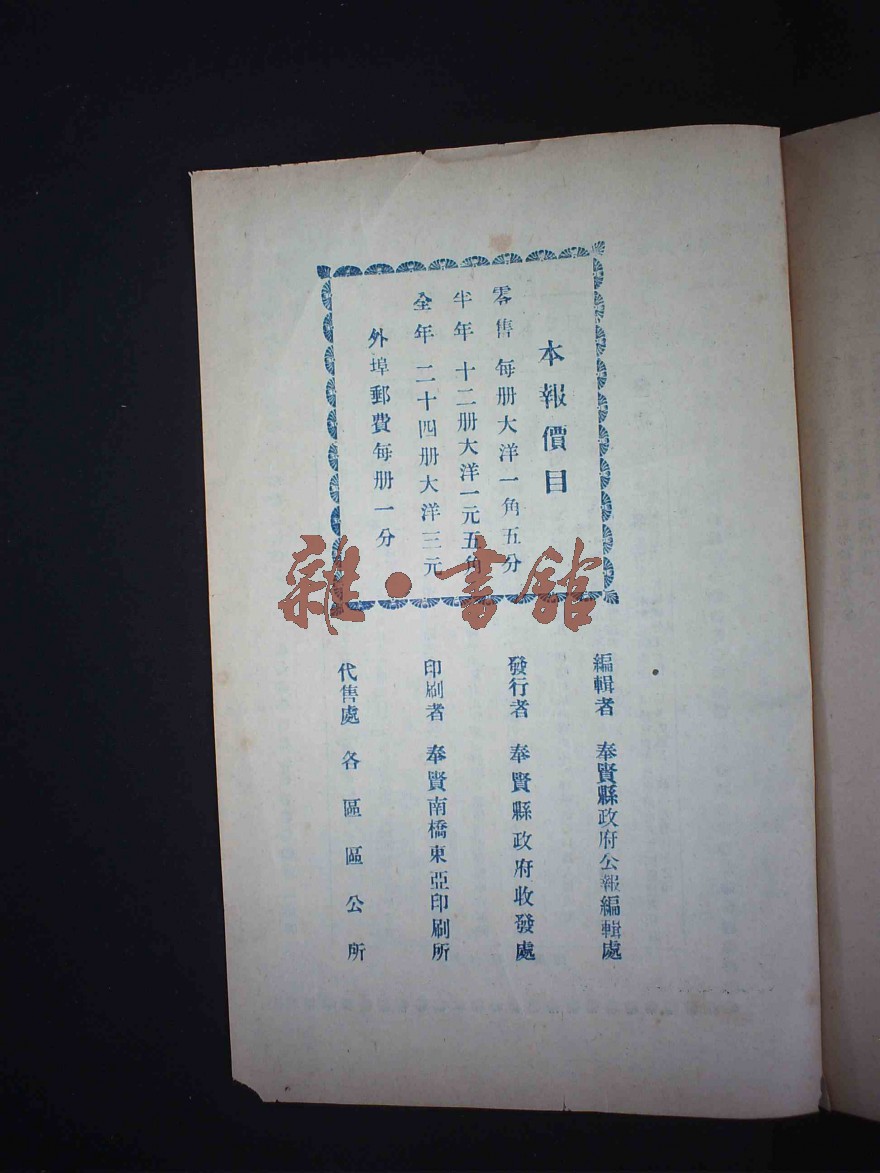 本報價目
零售 每册大洋一角五分
半年 十二册大洋一元五角
全年 二十四册大洋三元
外埠郵費每册一分
編輯者 奉賢縣政府公報編輯處
發行者 奉賢縣政府收發處
印刷者 奉賢南橋東亞印刷所
代售處 各區區公所
雜·書館